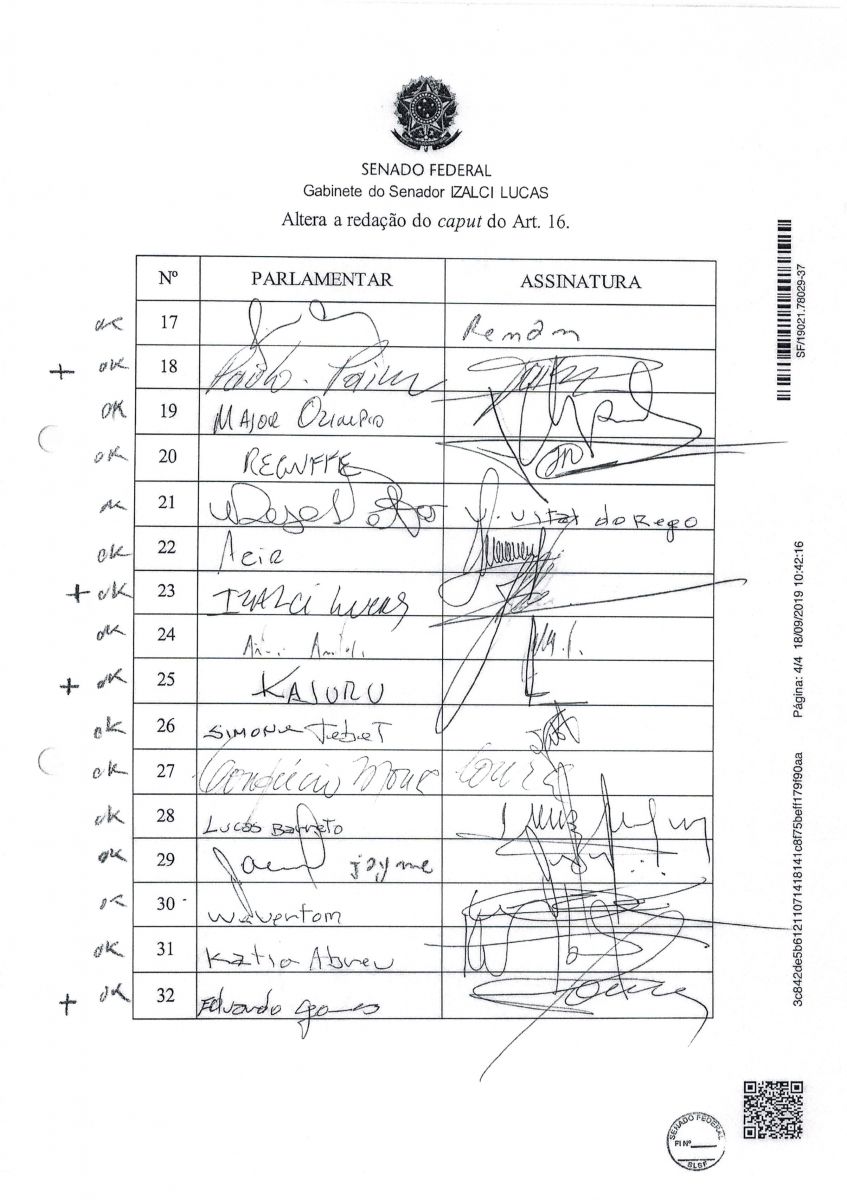 SENADO FEDERAL
Gabinete do Senador IZALCI LUCAS
Altera a redação do caput do Art. 16.
Nº PARLAMENTAR ASSINATURA
OK 17 Renan
+ OK 18 Paulo Paim
OK 19 MAJOR OLIMPIO
OK 20 REGUFFE
OK 21 V. Vital do Rego
OK 22 Acir
+ OK 23 IZALCI LUCAS
OK 24
+ OK 25 KAJURU
OK 26 SIMONE Tebet
OK 27
OK 28 Lucas Barreto
OK 29 jayme
OK 30
OK 31 Katia Abreu
+ OK 32 Eduardo Gomes
SF/19021.78029-37
Página: 4/4 18/09/2019 10:42:16
3c842de5b61211071418141c8f75beff179f90aa
SENADO FEDERAL
Fl Nº
SLSF